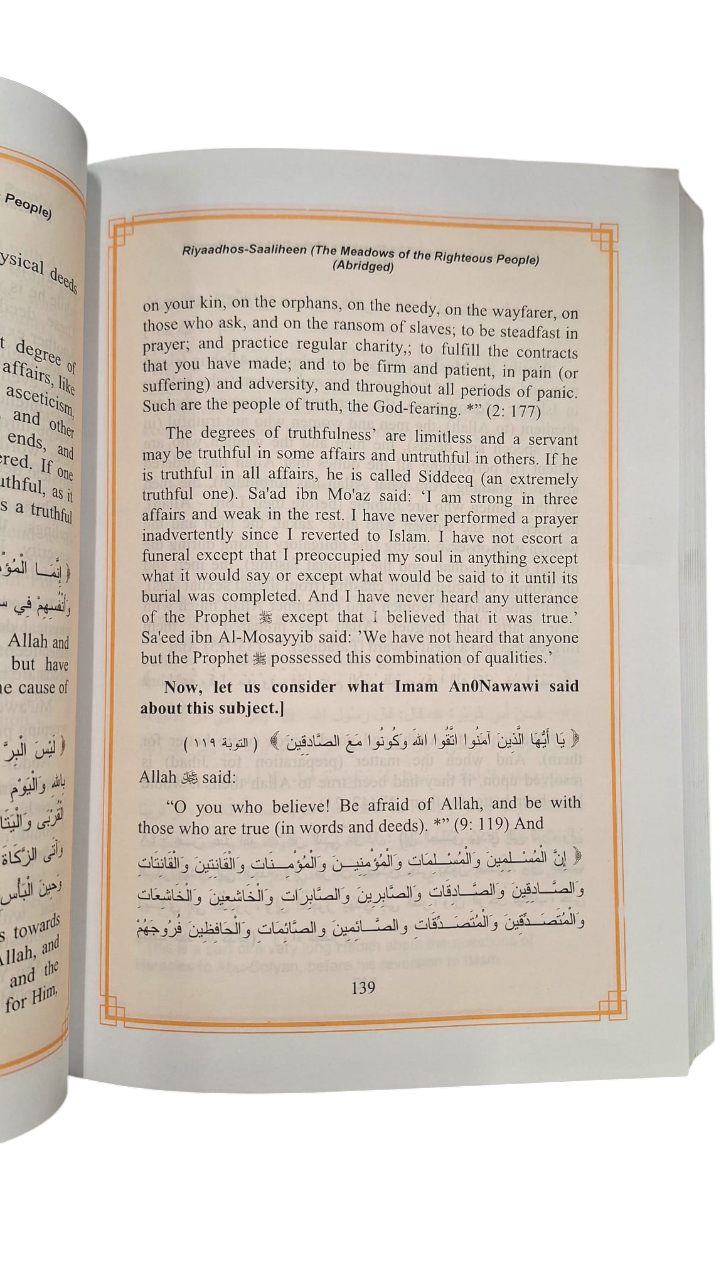 People)
ysical deeds
t degree of
affairs, like
asceticism,
and other
ends, and
red. If one
uthful, as it
s a truthful
﴿ إِنَّمَا الْمُؤْ
وَأَنْفُسِهِمْ فِي س
Allah and
but have
e cause of
﴿ لَيْسَ الْبِرَّ
بِاللهِ وَالْيَوْمِ
الْقُرْبَى وَالْيَتَا
وَآتَى الزَّكَاةَ
وَحِينَ الْبَأْسِ
s towards
Allah, and
and the
for Him,
Riyaadhos-Saaliheen (The Meadows of the Righteous People)
(Abridged)
on your kin, on the orphans, on the needy, on the wayfarer, on
those who ask, and on the ransom of slaves; to be steadfast in
prayer; and practice regular charity,; to fulfill the contracts
that you have made; and to be firm and patient, in pain (or
suffering) and adversity, and throughout all periods of panic.
Such are the people of truth, the God-fearing. *” (2: 177)
The degrees of truthfulness’ are limitless and a servant
may be truthful in some affairs and untruthful in others. If he
is truthful in all affairs, he is called Siddeeq (an extremely
truthful one). Sa'ad ibn Mo'az said: ‘I am strong in three
affairs and weak in the rest. I have never performed a prayer
inadvertently since I reverted to Islam. I have not escort a
funeral except that I preoccupied my soul in anything except
what it would say or except what would be said to it until its
burial was completed. And I have never heard any utterance
of the Prophet ﷺ except that I believed that it was true.’
Sa'eed ibn Al-Mosayyib said: ’We have not heard that anyone
but the Prophet ﷺ possessed this combination of qualities.’
Now, let us consider what Imam An0Nawawi said
about this subject.]
﴿ يَا أَيُّهَا الَّذِينَ آمَنُوا اتَّقُوا اللهَ وَكُونُوا مَعَ الصَّادِقِينَ ﴾ ( التوبة ١١٩ )
Allah ﷻ said:
“O you who believe! Be afraid of Allah, and be with
those who are true (in words and deeds). *” (9: 119) And
﴿ إِنَّ الْمُسْلِمِينَ وَالْمُسْلِمَاتِ وَالْمُؤْمِنِينَ وَالْمُؤْمِنَاتِ وَالْقَانِتِينَ وَالْقَانِتَاتِ
وَالصَّادِقِينَ وَالصَّادِقَاتِ وَالصَّابِرِينَ وَالصَّابِرَاتِ وَالْخَاشِعِينَ وَالْخَاشِعَاتِ
وَالْمُتَصَدِّقِينَ وَالْمُتَصَدِّقَاتِ والصَّائِمِينَ وَالصَّائِمَاتِ وَالْحَافِظِينَ فُرُوجَهُمْ
139